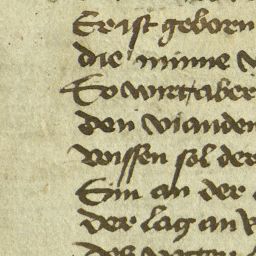 Er ist geborn
die minne
So wirt aber
den vianden
wissen sol der
Sin an der
der lag an